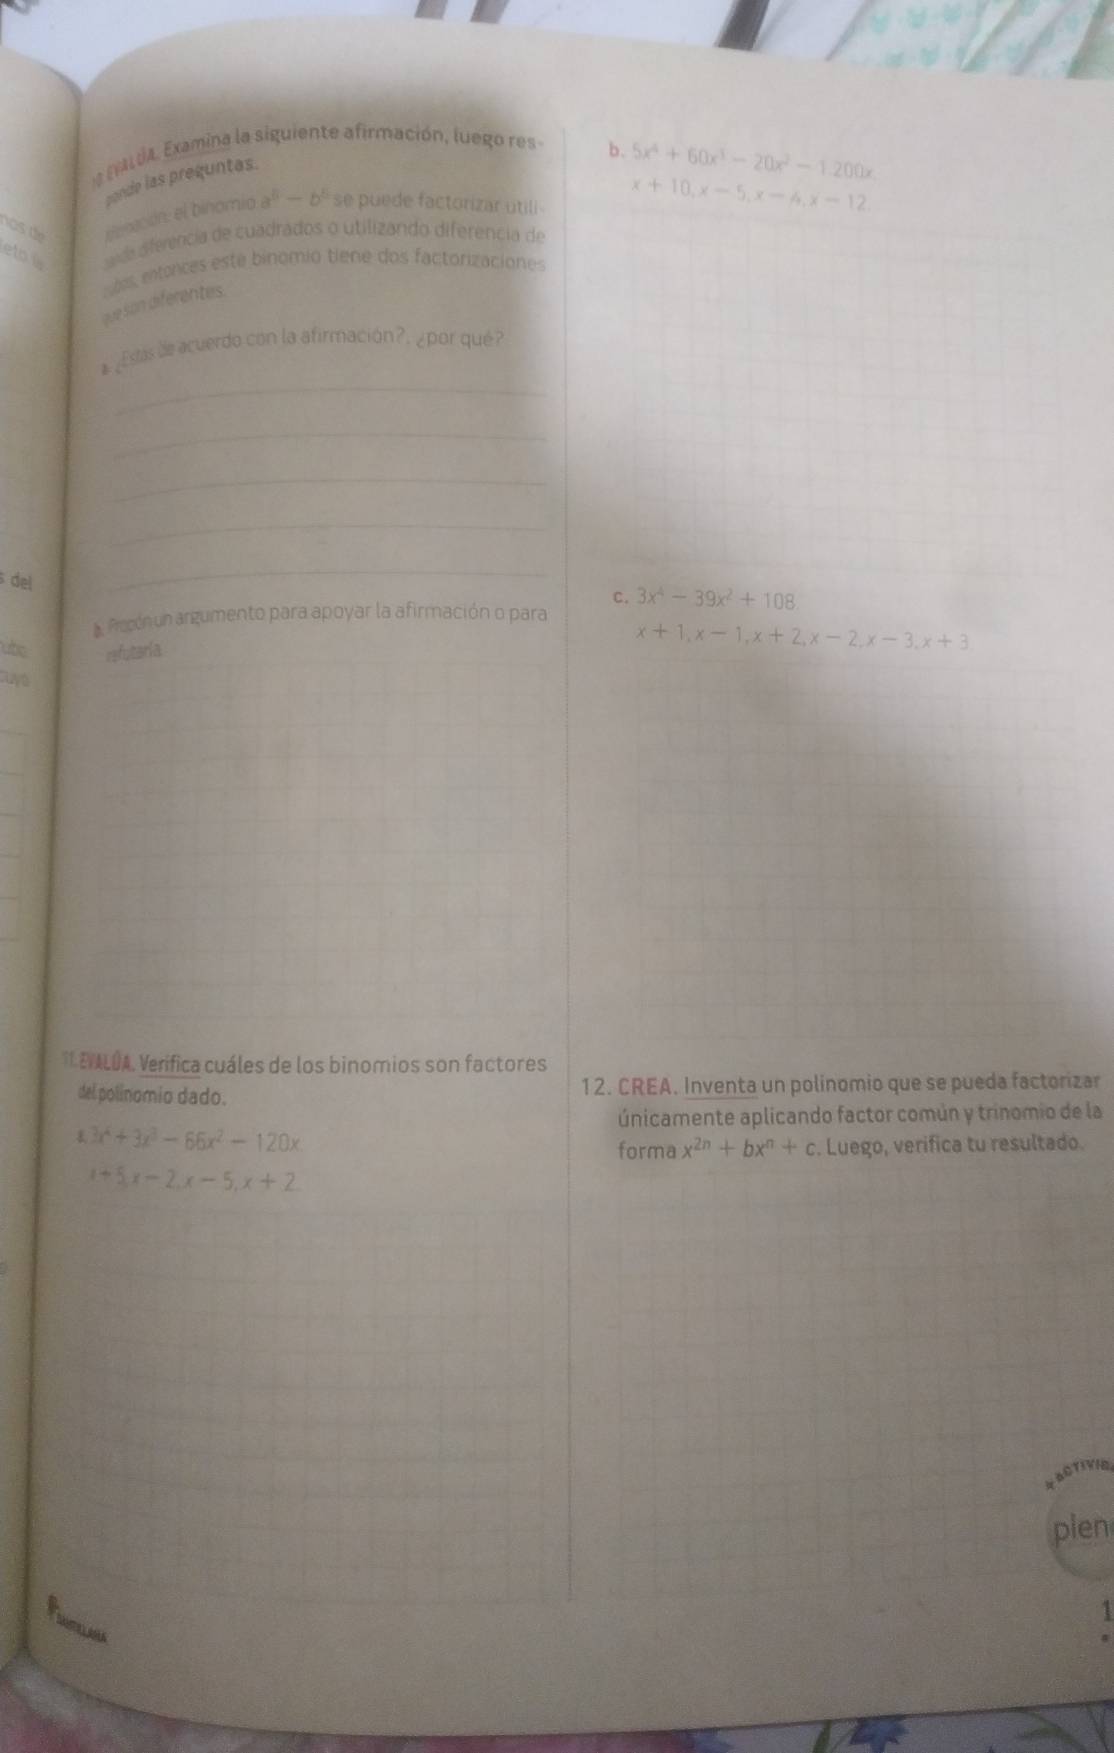 10. EVALÚA. Examina la siguiente afirmación, luego res-
ponde las preguntas.
Afirmación: el binomio a⁶ − b⁶ se puede factorizar utili-
zando diferencia de cuadrados o utilizando diferencia de
cubos, entonces este binomio tiene dos factorizaciones
que son diferentes.
a. ¿Estás de acuerdo con la afirmación?, ¿por qué?
b. Propón un argumento para apoyar la afirmación o para
refutarla.
11. EVALÚA. Verifica cuáles de los binomios son factores
del polinomio dado.
a. 3x⁴ + 3x³ − 66x² − 120x
x + 5, x − 2, x − 5, x + 2
SANTILLANA
b. 5x⁴ + 60x³ − 20x² − 1.200x.
x + 10, x − 5, x − 4, x − 12.
c. 3x⁴ − 39x² + 108
x + 1, x − 1, x + 2, x − 2, x − 3, x + 3
12. CREA. Inventa un polinomio que se pueda factorizar
únicamente aplicando factor común y trinomio de la
forma x²ⁿ + bxⁿ + c. Luego, verifica tu resultado.
nos de
leto la
s del
cubo
cuyo
ACTIVID
plen
1